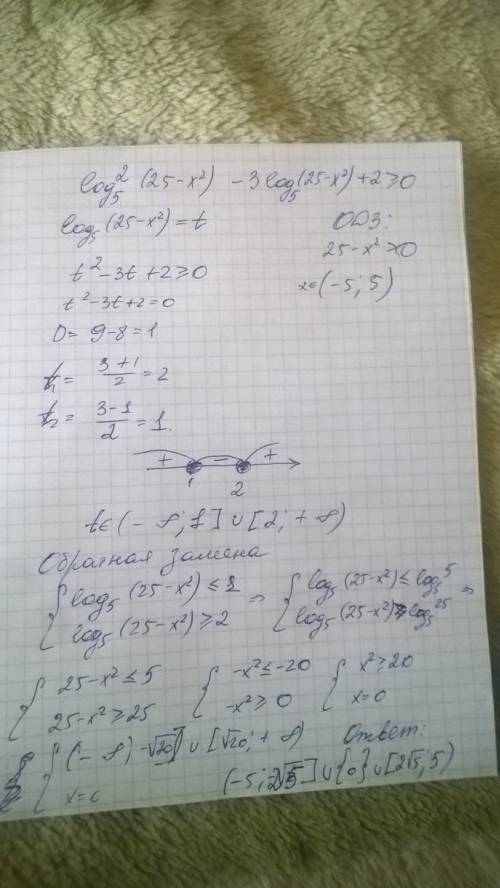 log₅²(25-x²) -3log₅(25-x²)+2≥0
log₅(25-x²)=t
ОДЗ:
25-x²>0
x∈(-5;5)
t²-3t+2≥0
t²-3t+2=0
D=9-8=1
t₁= (3+1)/2 =2
t₂= (3-1)/2 =1.
+ - +
1 2
t∈(-∞;1]∪[2;+∞)
Обратная замена
{ log₅(25-x²)≤1 ⇒ { log₅(25-x²)≤log₅5 ⇒
log₅(25-x²)≥2 log₅(25-x²)≥log₅25
{ 25-x²≤5 { -x²≤-20 { x²≥20
25-x²≥25 -x²≥0 x=0
{ (-∞;-√20]∪[√20;+∞) Ответ:
x=0 (-5;2√5]∪{0}∪[2√5;5)